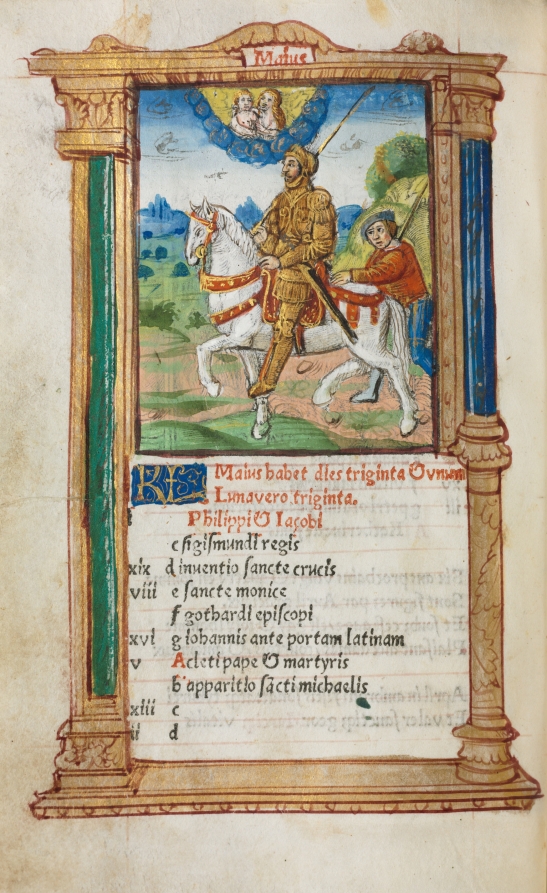 Maius
KL Maius habet dies triginta & unum
Luna vero triginta.
Philippi & Iacobi
c sigismundi regis
xix d inventio sancte crucis
viii e sancte monice
f gothardi episcopi
xvi g iohannis ante portam latinam
v A cleti pape & martyris
b apparitio sancti michaelis
xiii c
ii d